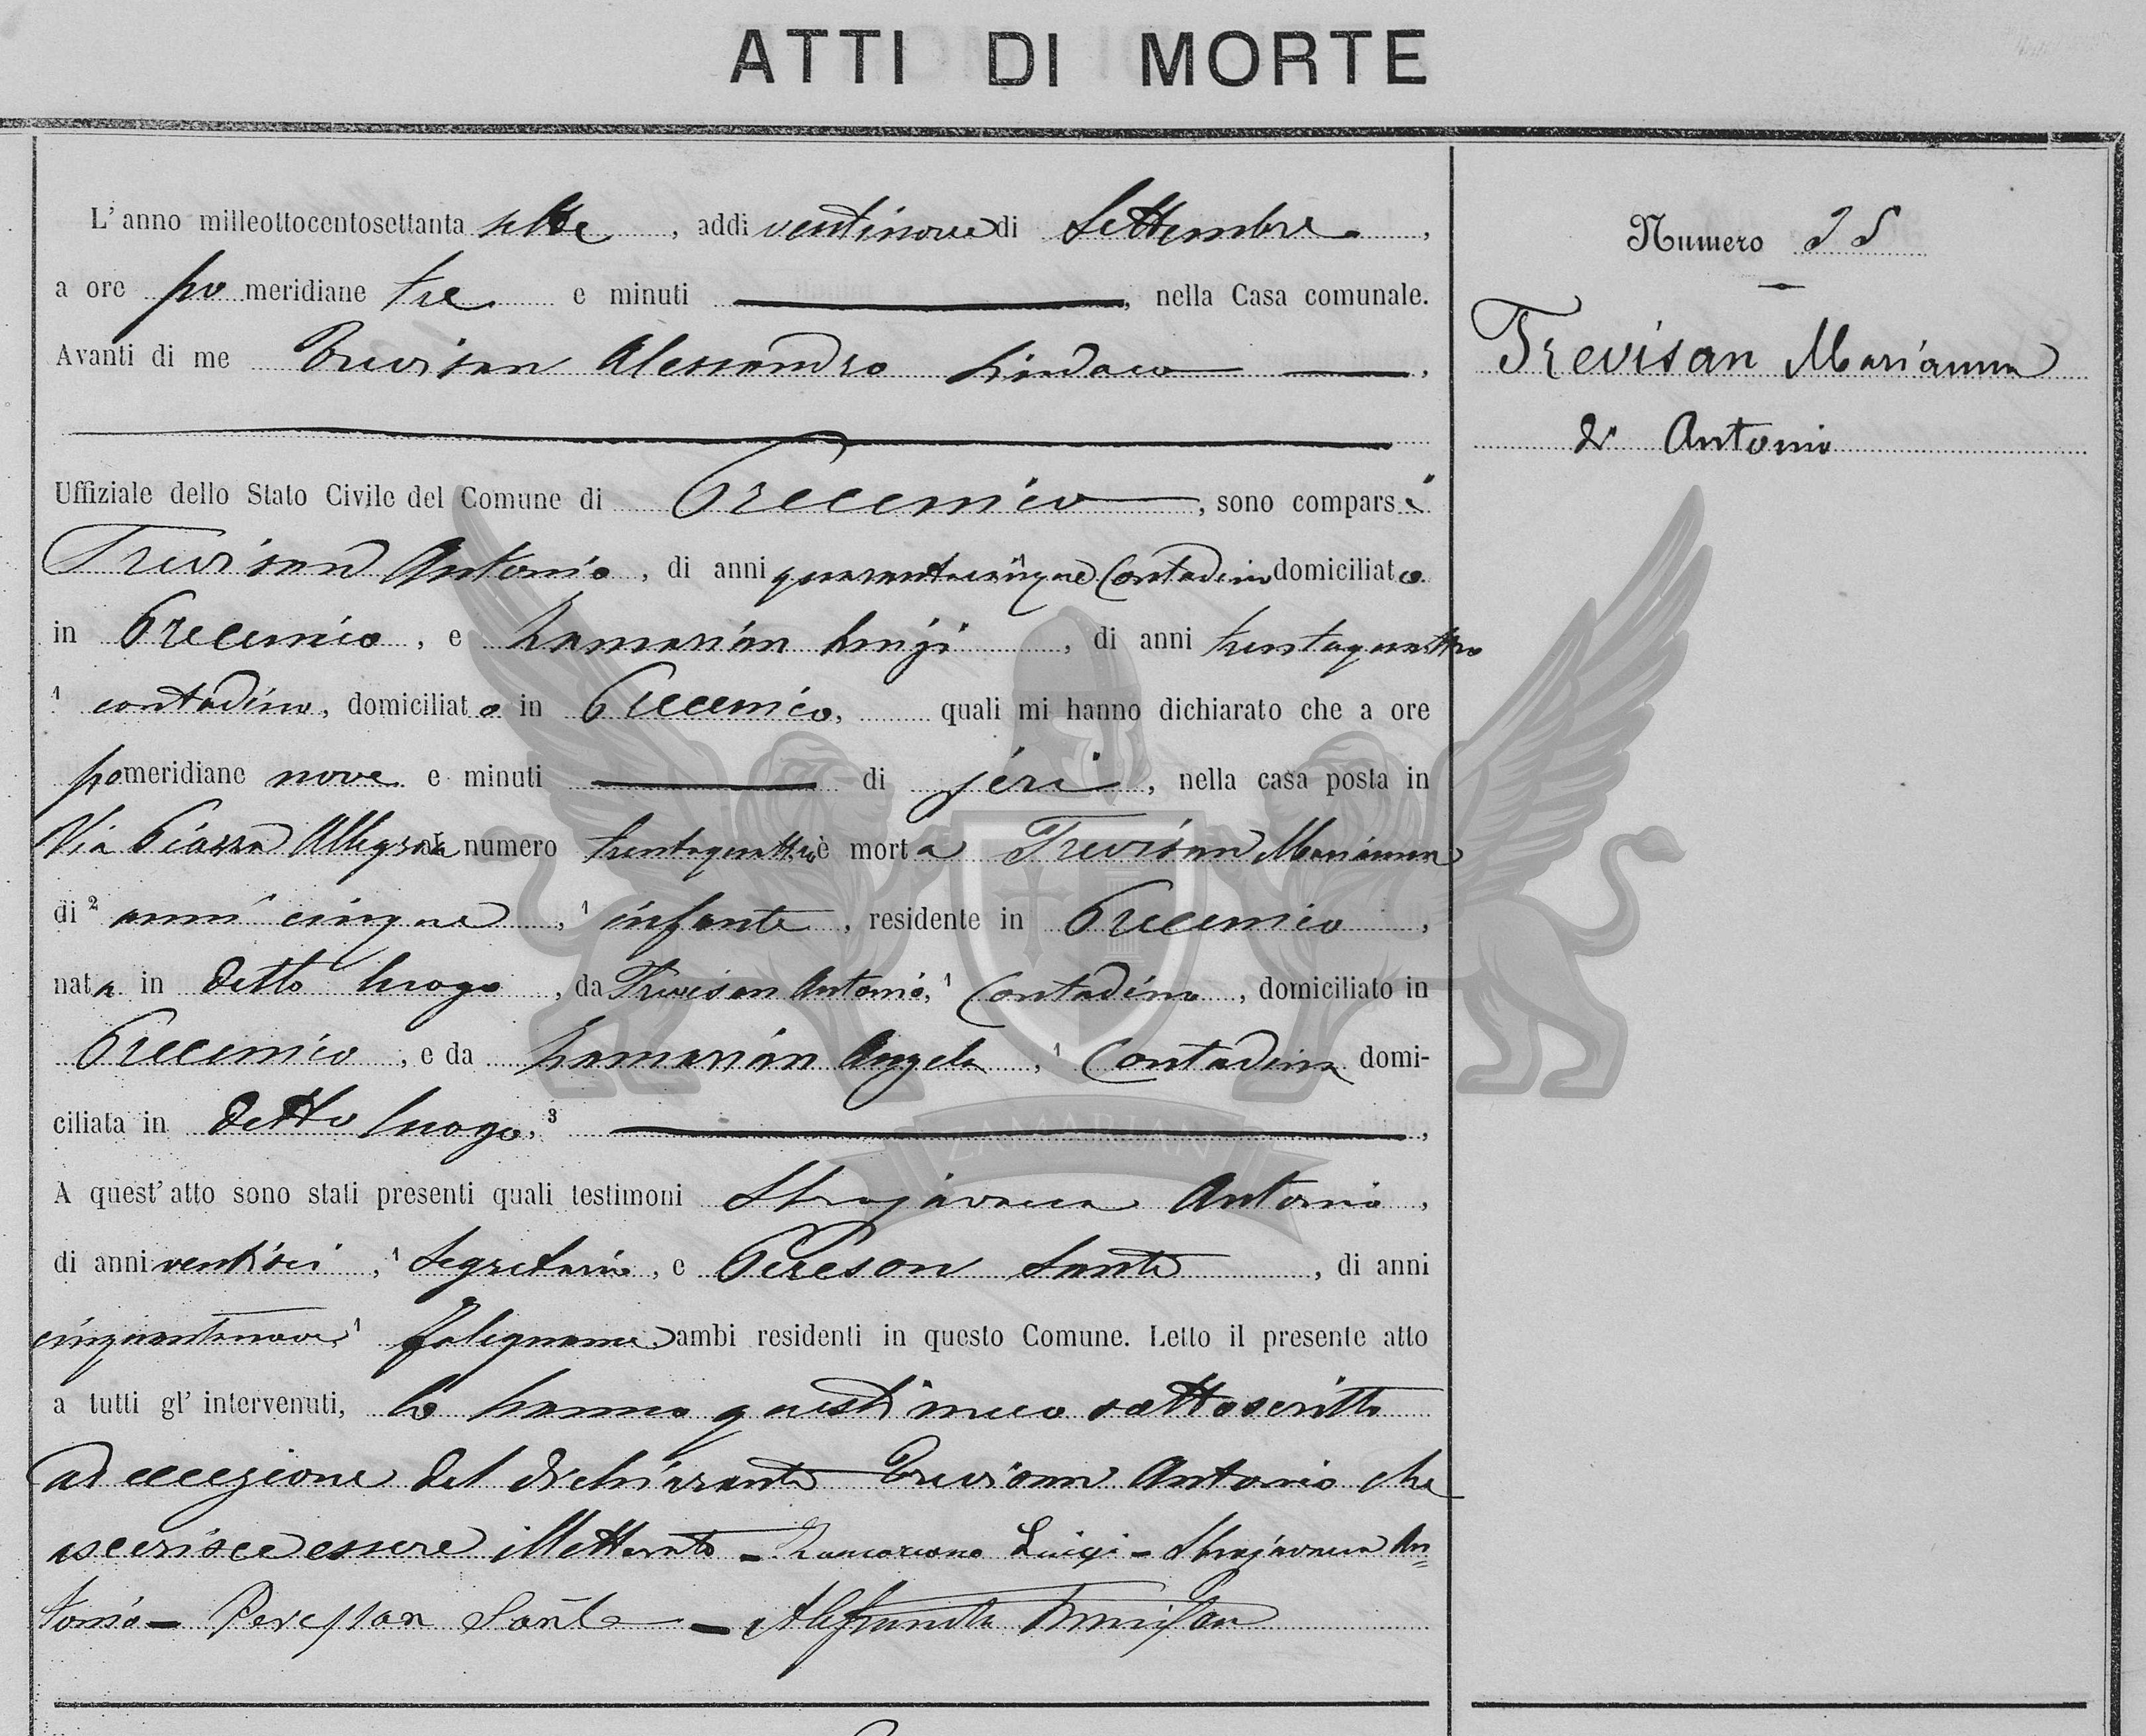 ATTI DI MORTE
L'anno milleottocentosettanta sette, addi ventinove di Settembre,
a ore po meridiane tre e minuti, nella Casa comunale.
Avanti di me Trevisan Alessandro Sindaco,
Uffiziale dello Stato Civile del Comune di Precenico, sono comparsi
Trevisan Antonio, di anni quarantacinque Contadino domiciliato
in Precenico, e Zamarian Luigi, di anni trentaquattro
¹ contadino, domiciliato in Precenico, quali mi hanno dichiarato che a ore
pomeridiane nove e minuti di jeri, nella casa posta in
Via Piazza Allegra al numero trentaquattro è morta Trevisan Marianna
di ² anni cinque, ¹ infante, residente in Precenico,
nata in detto luogo, da Trevisan Antonio, ¹ Contadino, domiciliato in
Precenico, e da Zamarian Angela, ¹ Contadina domi-
ciliata in detto luogo, ³
ZAMARIAN
A quest'atto sono stati presenti quali testimoni Strajavacca Antonio,
di anni ventisei, ¹ Segretario, e Pereson Sante, di anni
cinquantanove, ¹ falegname, ambi residenti in questo Comune. Letto il presente atto
a tutti gl'intervenuti, lo hanno questi meco sottoscritto
ad eccezione del dichiarante Trevisan Antonio che
asserisce essere illetterato - Zamariano Luigi - Strajavacca An=
tonio - Peresson Sante - Alessandro Trevisan
Numero 25
Trevisan Marianna
di Antonio